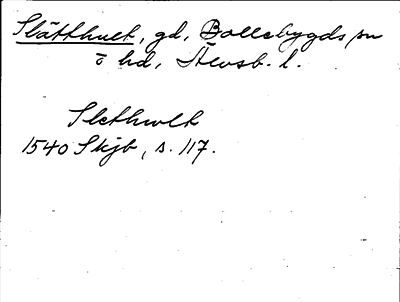 Slätthult, gd, Bollebygds sn
o hd, Älvsb. l.
Slethwlt
1540 Skjb, s. 117.